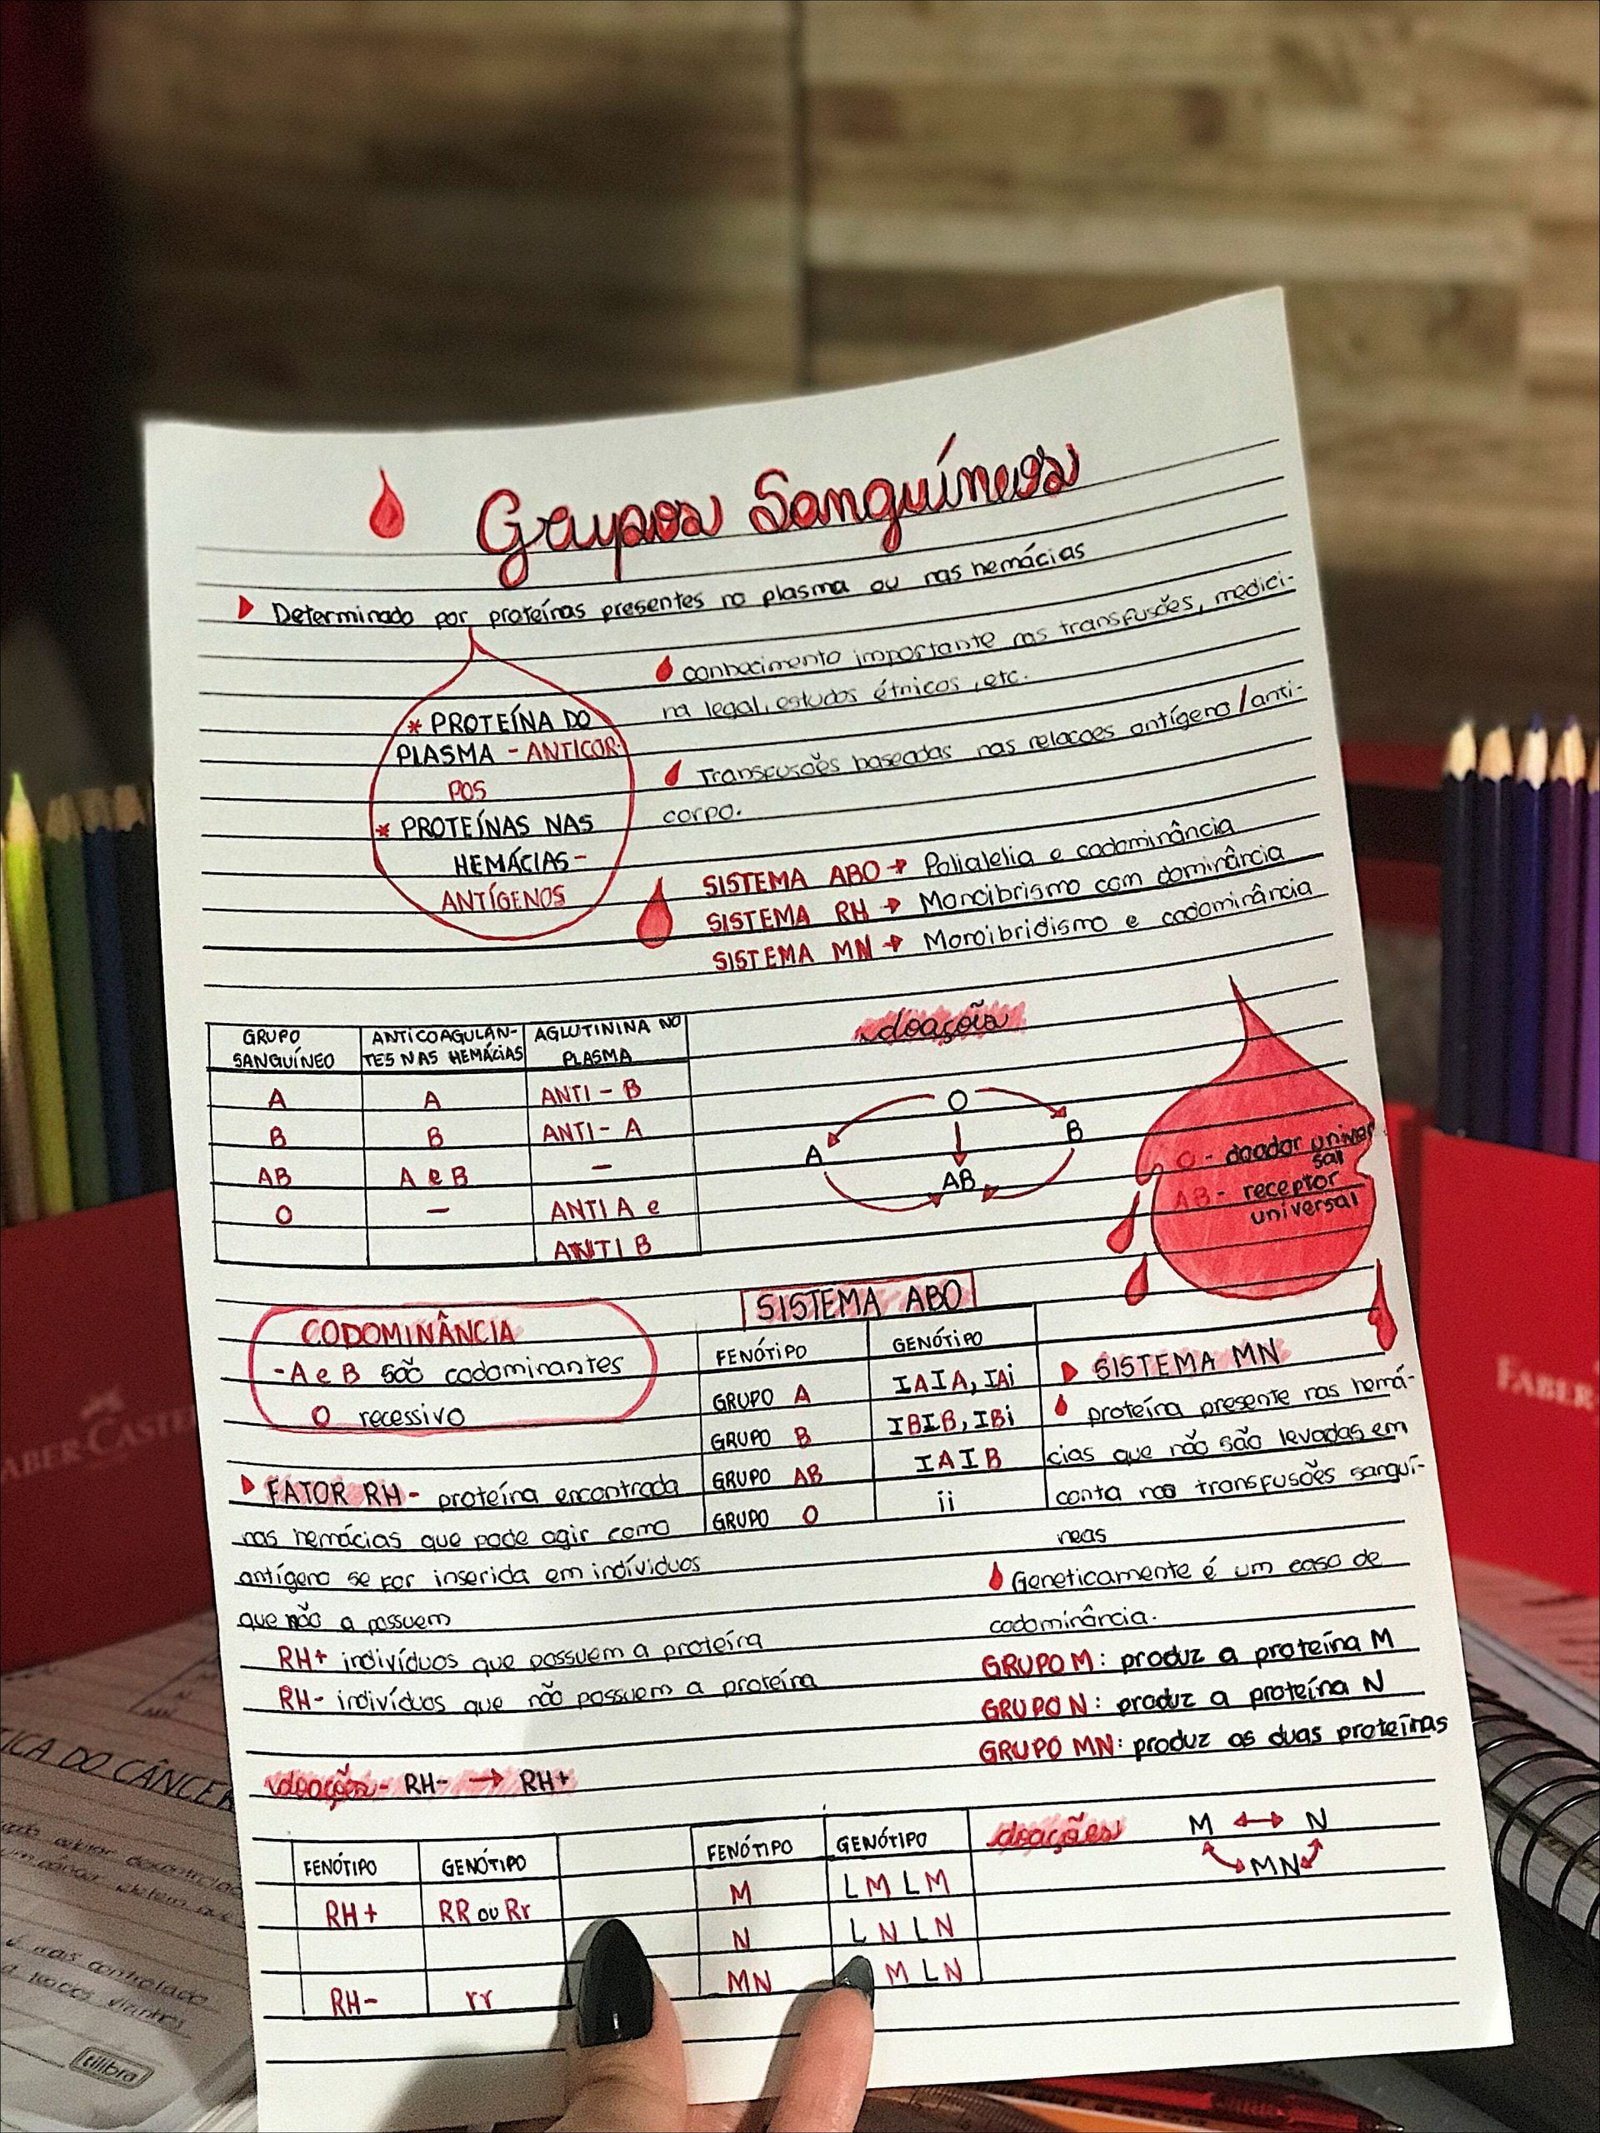 Grupos Sanguíneos
Determinado por proteínas presentes no plasma ou nas hemácias
* PROTEÍNA DO
PLASMA - ANTICOR-
POS
* PROTEÍNAS NAS
HEMÁCIAS -
ANTÍGENOS
conhecimento importante nas transfusões, medici-
na legal, estudos étnicos, etc.
Transfusões baseadas nas relacoes antígeno/anti-
corpo.
SISTEMA ABO → Polialelia e codominância
SISTEMA RH → Monoibrismo com dominância
SISTEMA MN → Monoibridismo e codominância
GRUPO SANGUÍNEO ANTICOAGULAN-TES NAS HEMÁCIAS AGLUTININA NO PLASMA
A A ANTI - B
B B ANTI - A
AB A e B -
O - ANTI A e
ANTI B
doações
O
A B
AB
O - doador univer
sal
AB - receptor
universal
CODOMINÂNCIA
- A e B são codominantes
O recessivo
SISTEMA ABO
FENÓTIPO GENÓTIPO
GRUPO A IAIA, IAi
GRUPO B IBIB, IBi
GRUPO AB IAIB
GRUPO O ii
FATOR RH - proteína encontrada
nas hemácias que pode agir como
antígeno se for inserida em indivíduos
que não a possuem
RH+ indivíduos que possuem a proteína
RH- indivíduos que não possuem a proteína
doações - RH- → RH+
FENÓTIPO GENÓTIPO
RH+ RR ou Rr
RH- rr
SISTEMA MN
proteína presente nas hemá-
cias que não são levadas em
conta nas transfusões sanguí-
neas
Geneticamente é um caso de
codominância.
GRUPO M: produz a proteína M
GRUPO N: produz a proteína N
GRUPO MN: produz as duas proteínas
FENÓTIPO GENÓTIPO
M LMLM
N LNLN
MN MLN
doações M ↔ N
MN
FABER-CASTELL
FABER-C
ICA DO CÂNCER
tilibra